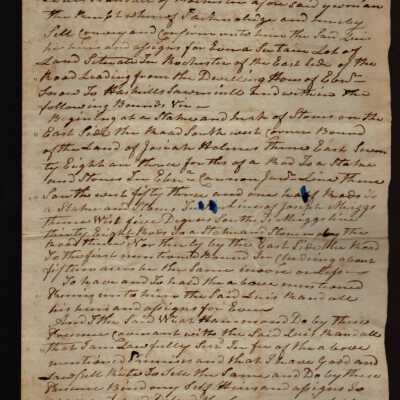 of Rochester afore said yeoman
the Receipt whereof I acknoledge and hereby
Sell Convey and Confirm unto him the Said Luis
his heirs and assigns for Ever a Sertain Lot of
Land Setuate In Rochester of the East Side of the
Road Leading from the Dwelling House of Eben
Snow To Haskills Sawmill and within the
following Bounds Viz
Begining at a Stake and heap of Stones on the
East Side the Road South west Corner Bound
of the Land of Josiah Holmes thence East Seven
ty Eight an three forths of a Rod To a Stake
and Stones In Cannon Line thence
South west fifty three and one half Rods to
a Stake and Stones In Line of Joseph Meiggs
thence West five Degrees South In Meiggs line
thirty Eight Rods to a Stake and Stones by the
Road thence Northerly by the East Side the Road
To the first mentioned Bound Including about
fifteen acres be the Same more or Less
To have and To hold the above mentioned
Premises to him the Said Luis Randall
his heirs and assigns for Ever
And I the Said Wiat Hammond Do by these
Presence Covenant with the Said Luis Randall
that I am Lawfully Seiz In fee of the above
mentioned Premises and that I have Good and
Lawfull Rite To Sell the Same and Do by these
Presence Bind my Self Heirs and assigns to